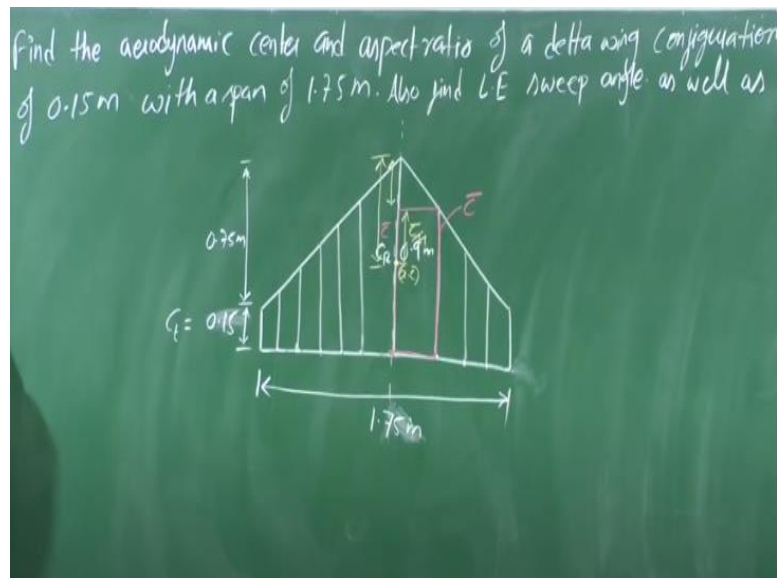 Find the aerodynamic center and aspect ratio of a delta wing configuration
of 0.15m with a span of 1.75m. Also find L.E sweep angle. as well as
0.75m
c̄
c̄
C_R 0.9m
(a.c)
C_t = 0.15
1.75m